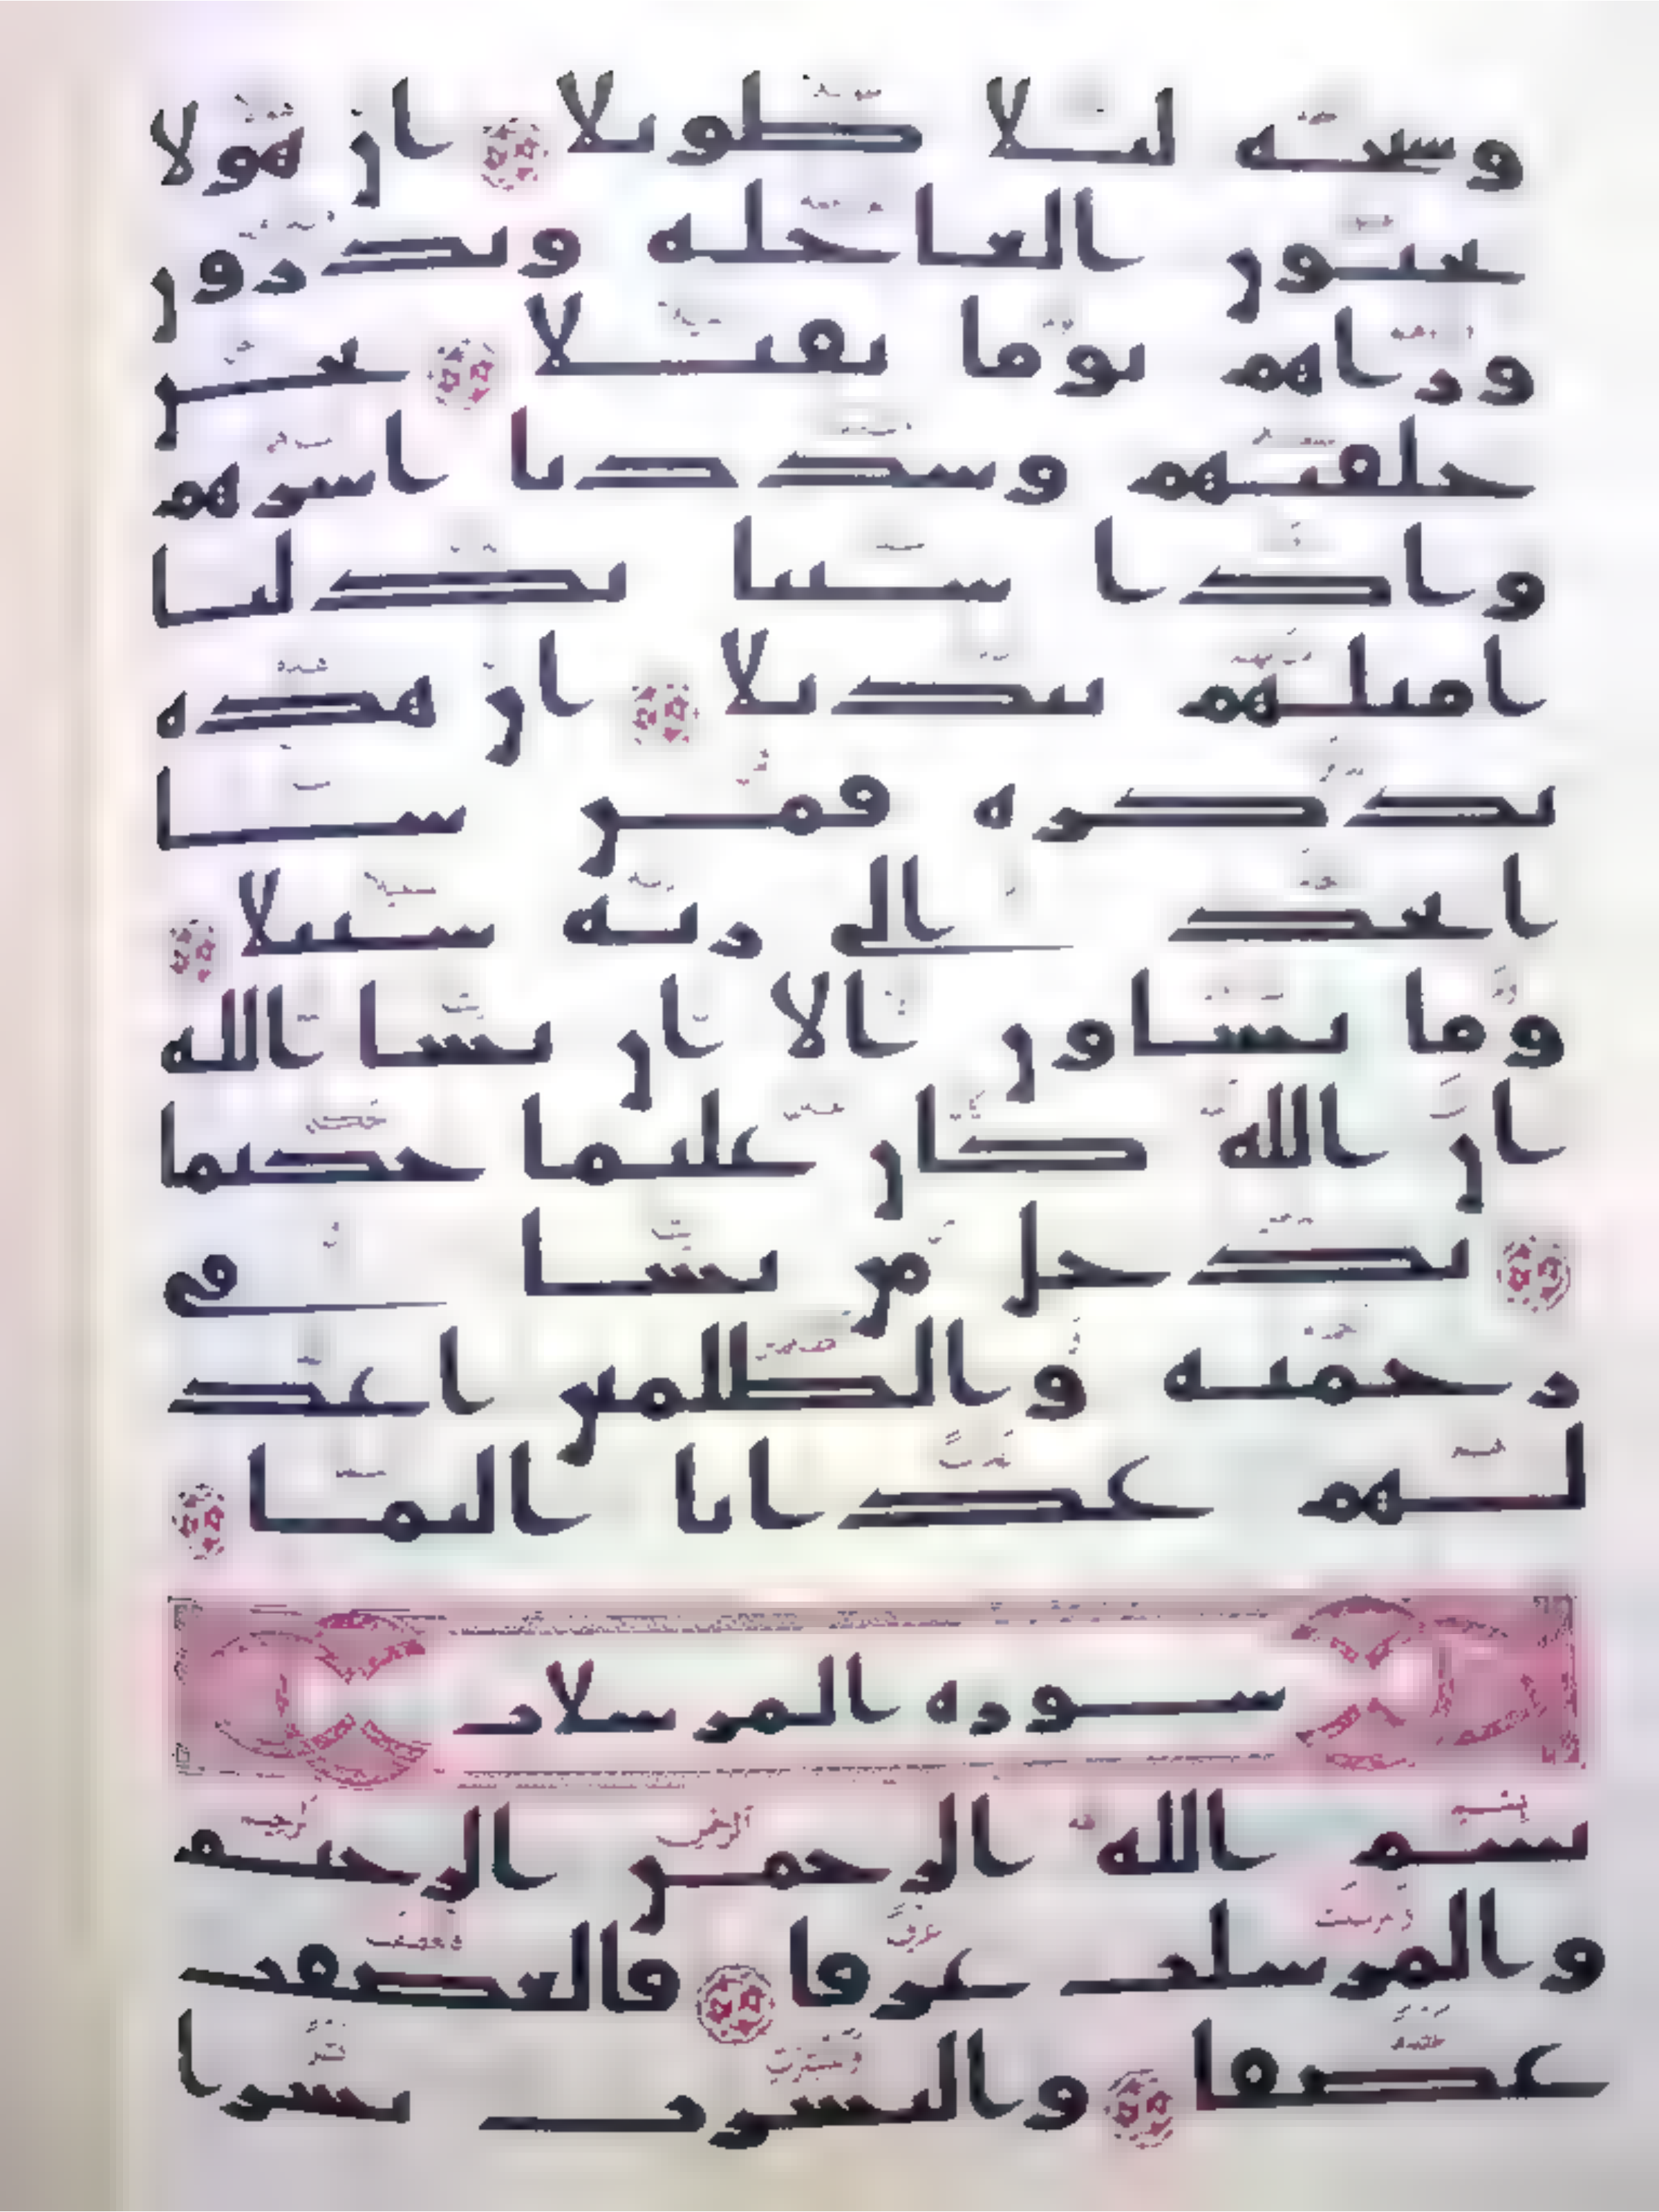 وسبحه ليلا طويلا ان هولا
يحبون العاجله ويذرون
وراهم يوما ثقيلا نحن
خلقنهم وشددنا اسرهم
واذا شينا بدلنا
امثلهم تبديلا ان هذه
تذكره فمن شا
اتخذ الى ربه سبيلا
وما تشاون الا ان يشا الله
ان الله كان عليما حكيما
يدخل من يشا في
رحمته والظلمين اعد
لهم عذابا اليما
سوره المرسلات
بسم الله الرحمن الرحيم
والمرسلت عرفا فالعصفت
عصفا والنشرت نشرا